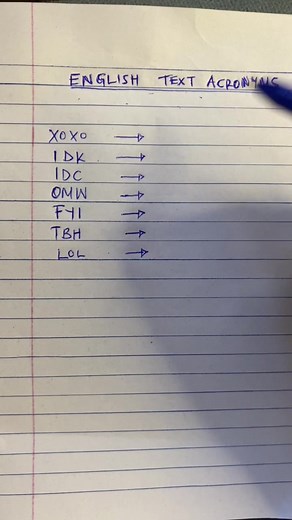 ENGLISH TEXT ACRONYMS
XOXO →
IDK →
IDC →
OMW →
FYI →
TBH →
LOL →